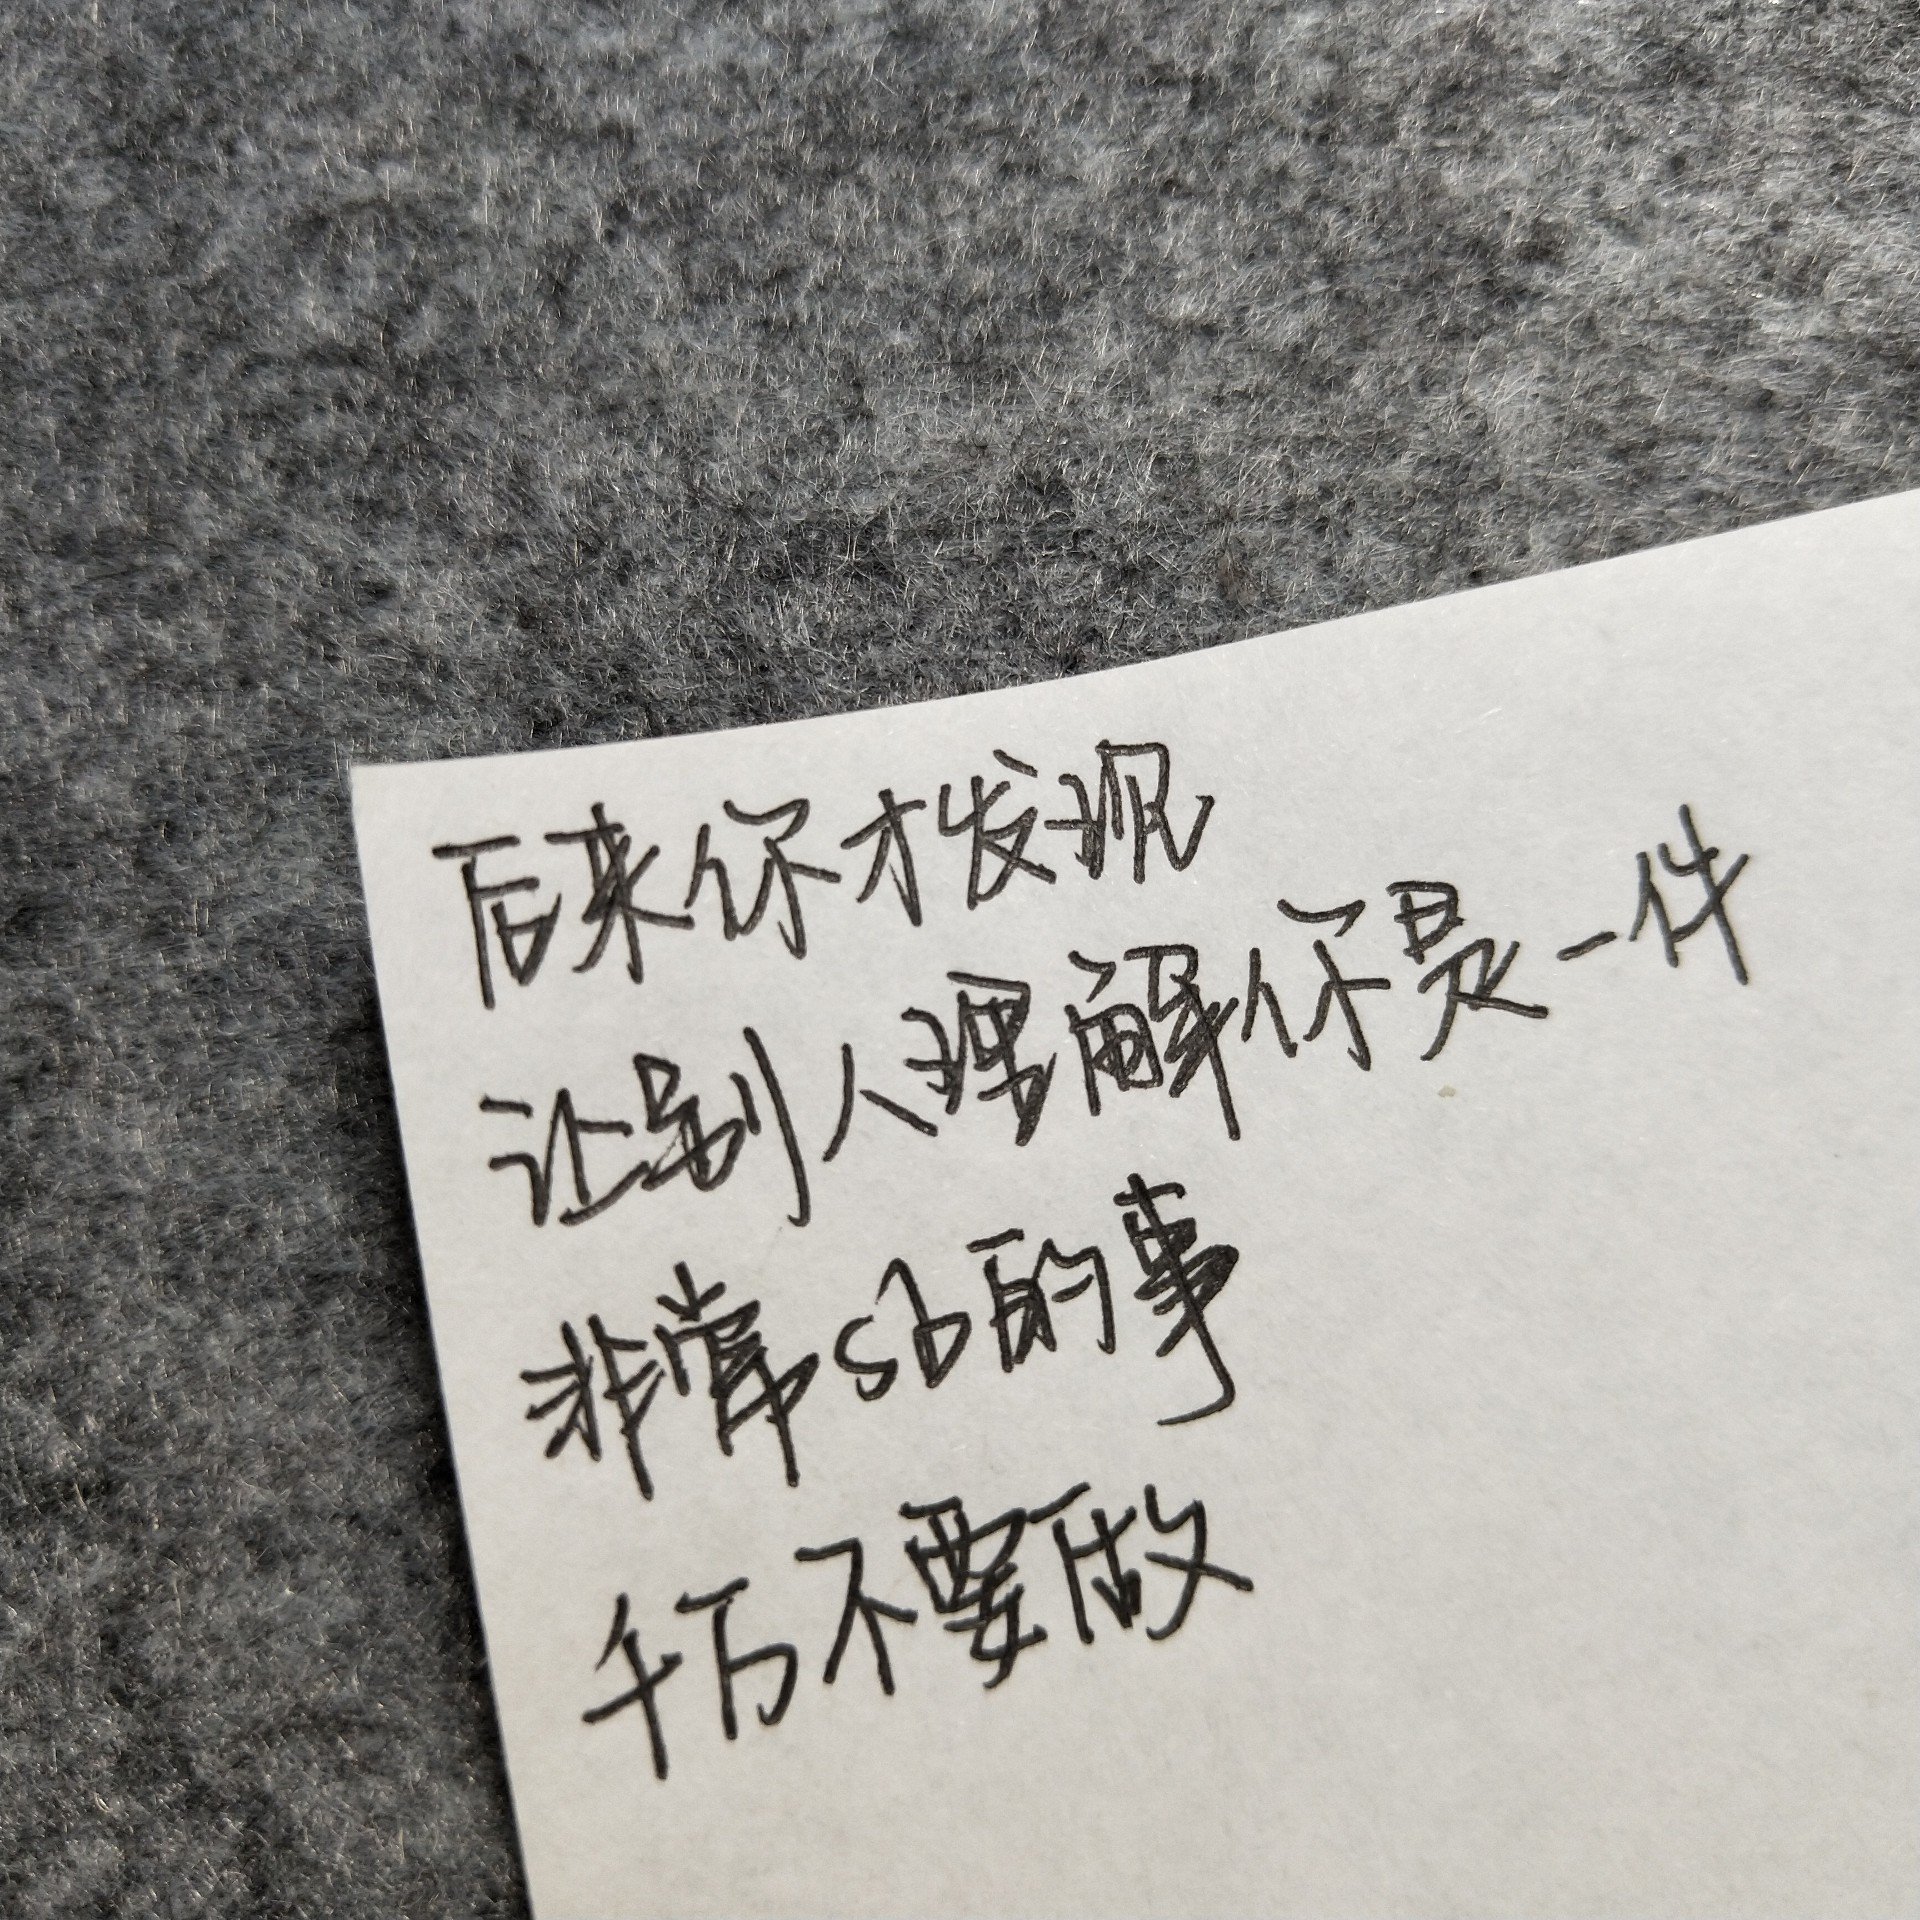 后来你才发现
让别人理解你是一件
非常sb的事
千万不要做